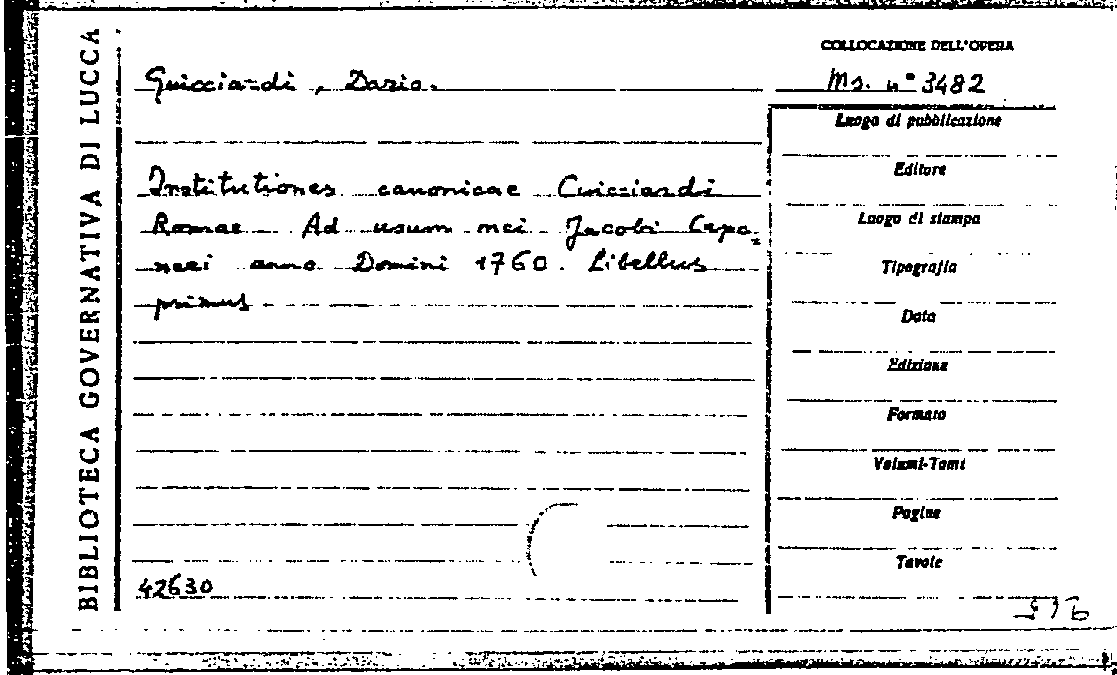 BIBLIOTECA GOVERNATIVA DI LUCCA
Guicciardi, Dario.
Institutiones canonicae Guicciardi
Romae Ad usum mei Jacobi Capo=
neri anno Domini 1760. Libellus
primus
42630
COLLOCAZIONE DELL'OPERA
Ms. n° 3482
Luogo di pubblicazione
Editore
Luogo di stampa
Tipografia
Data
Edizione
Formato
Volumi-Tomi
Pagine
Tavole